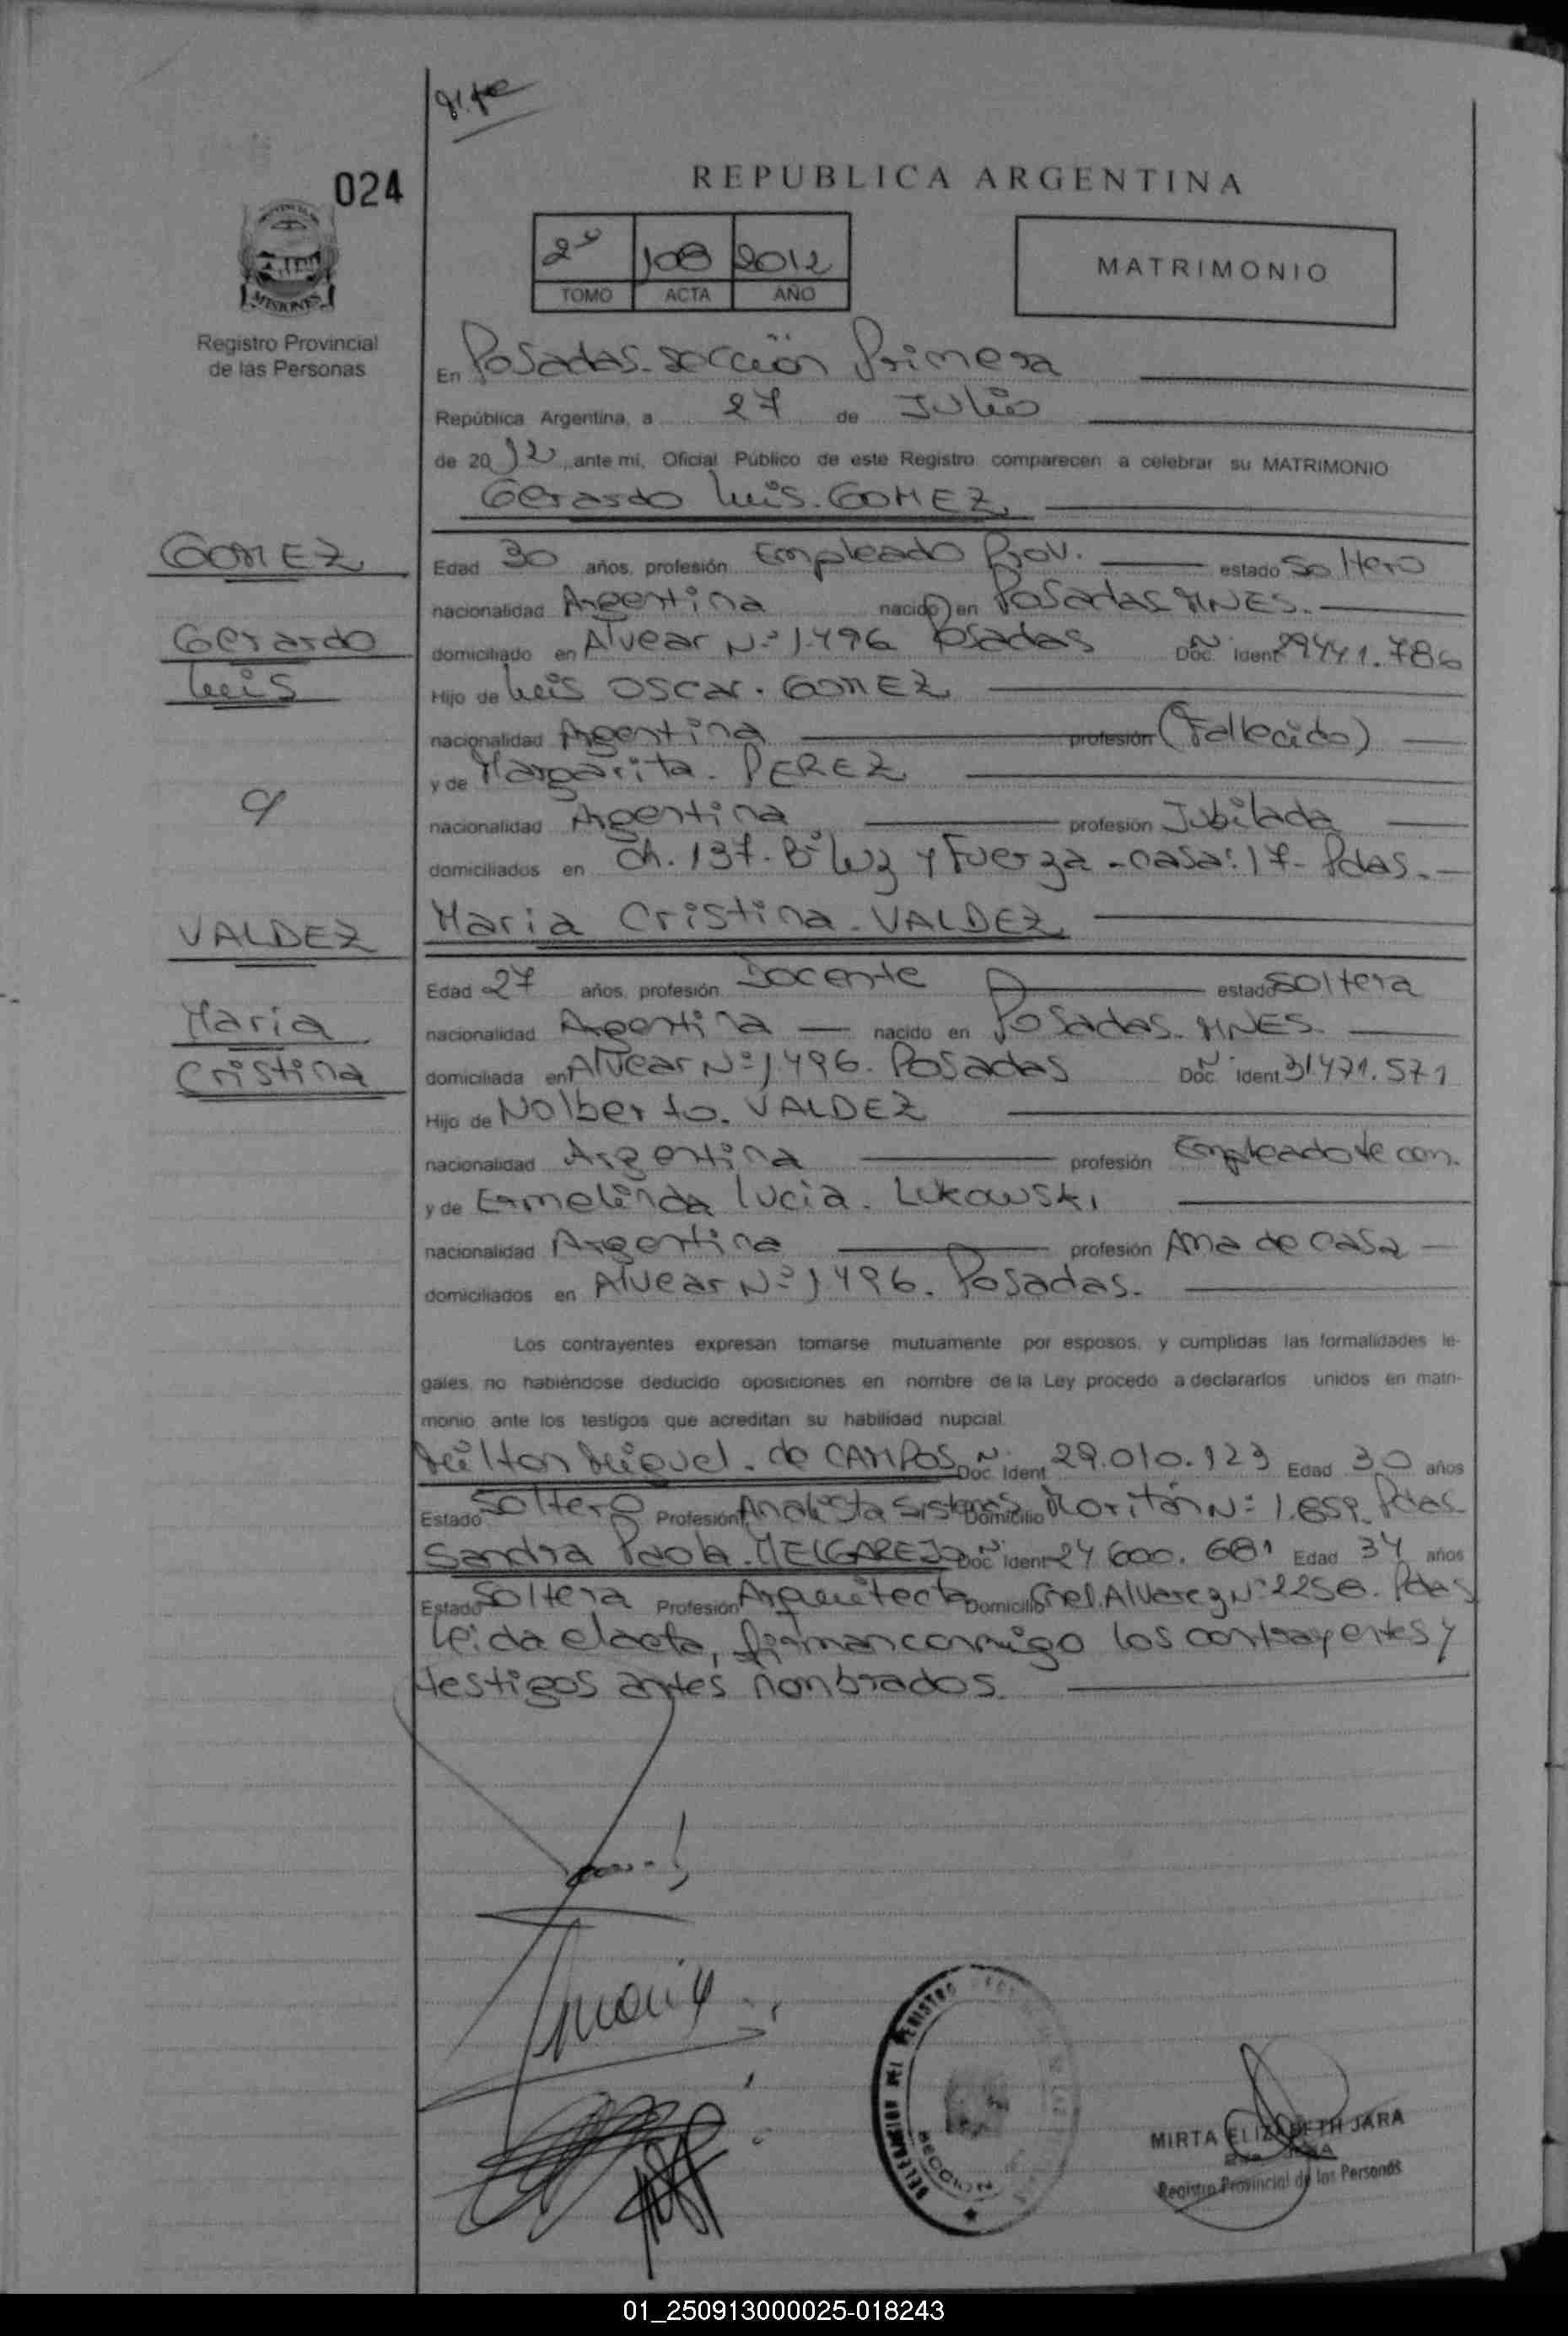 024
REPUBLICA ARGENTINA
2º 108 2012
TOMO ACTA AÑO
MATRIMONIO
MISIONES
Registro Provincial
de las Personas
En Posadas-sección Primera
República Argentina, a 27 de Julio
de 2012, ante mi, Oficial Público de este Registro comparecen a celebrar su MATRIMONIO
Gerardo Luis. GOMEZ
GOMEZ
Gerardo
Luis
Edad 30 años, profesión Empleado Prov. estado Soltero
nacionalidad Argentina nacido en Posadas MNES.
domiciliado en Alvear Nº 1.496 Posadas Doc. Ident 29441.786
Hijo de Luis OSCAR. GOMEZ
nacionalidad Argentina profesión (Fallecido)
y de Margarita. PEREZ
nacionalidad Argentina profesión Jubilada
domiciliados en Ch. 137. Bº Luz y Fuerza - casa: 17 - Pdas.
c/
VALDEZ
Maria
Cristina
Maria Cristina. VALDEZ
Edad 27 años, profesión Docente estado Soltera
nacionalidad Argentina nacido en Posadas. MNES.
domiciliada en Alvear Nº 1.496. Posadas Doc. Ident 31471.571
Hijo de Nolberto. VALDEZ
nacionalidad Argentina profesión Empleado de com.
y de Ermelinda Lucia. LUKOWSKI
nacionalidad Argentina profesión Ama de casa
domiciliados en Alvear Nº 1.496. Posadas.
Los contrayentes expresan tomarse mutuamente por esposos, y cumplidas las formalidades le-
gales, no habiéndose deducido oposiciones en nombre de la Ley procedo a declararlos unidos en matri-
monio ante los testigos que acreditan su habilidad nupcial.
Milton Miguel. de CAMPOS Doc. Ident 29.010.123 Edad 30 años
Estado Soltero Profesión Analista Sistemas Domicilio Moritán Nº 1.659. Pdas
Sandra Paola. MELGAREJO Doc. Ident 24600.681 Edad 34 años
Estado Soltera Profesión Arquitecta Domicilio Gral. Alvarez Nº 2258. Pdas
Leida el acta, firman conmigo los contrayentes y
testigos antes nombrados.
DELEGACION DEL REGISTRO
SECCION
MIRTA ELIZABETH JARA
Registro Provincial de las Personas
01_250913000025-018243